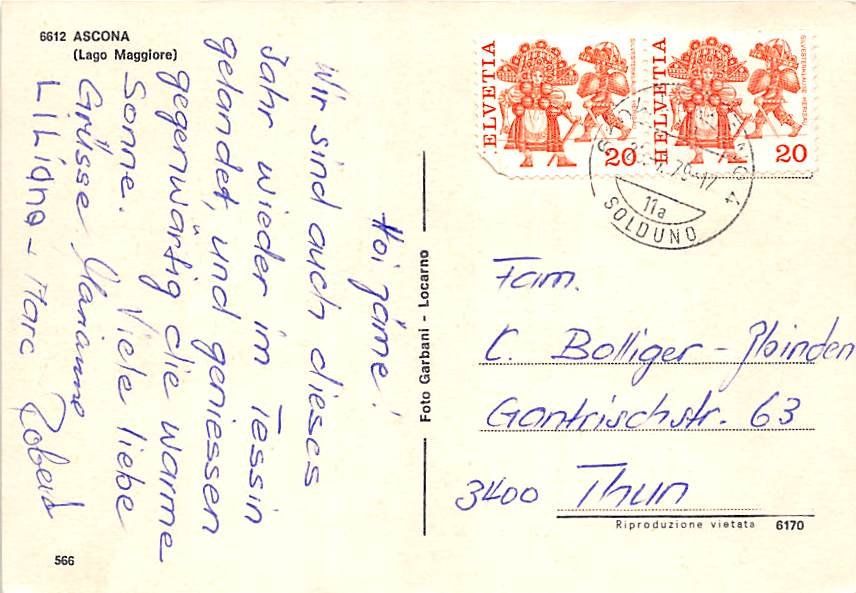 6612 ASCONA
(Lago Maggiore)
Hoi zäme!
Wir sind auch dieses
Jahr wieder im Tessin
gelandet, und geniessen
gegenwärtig die warme
Sonne. Viele liebe
Grüsse Marianne
Liliana - Marc Robert
Foto Garbani - Locarno
HELVETIA
SILVESTERKLÄUSE HERISAU
20
HELVETIA
SILVESTERKLÄUSE HERISAU
20
79-17
11a
SOLDUNO
Fam.
C. Bolliger - Zbinden
Gantrischstr. 63
3400 Thun
Riproduzione vietata 6170
566